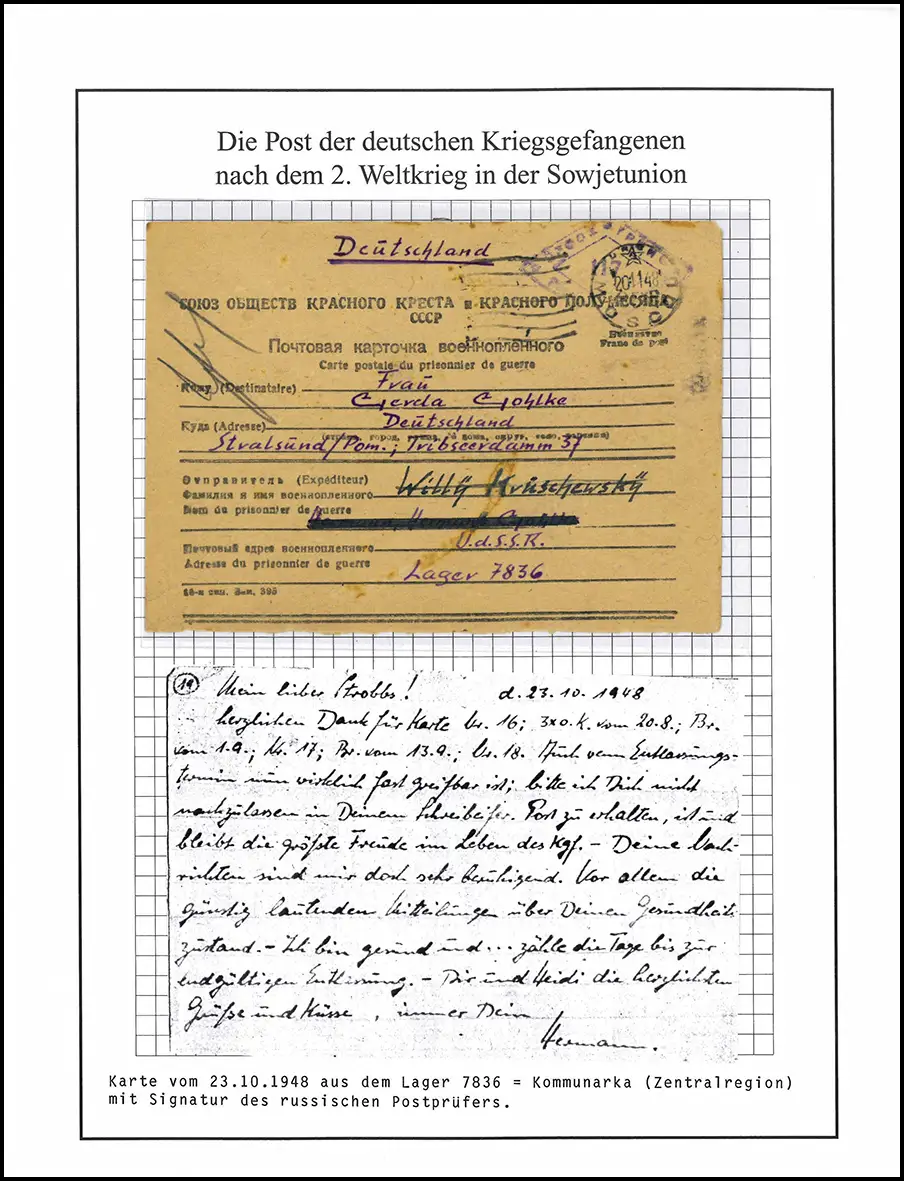 Die Post der deutschen Kriegsgefangenen
nach dem 2. Weltkrieg in der Sowjetunion
Deutschland
20 11 48
СОЮЗ ОБЩЕСТВ КРАСНОГО КРЕСТА и КРАСНОГО ПОЛУМЕСЯЦА
СССР
Почтовая карточка военнопленного
Бесплатно
Franc de port
Carte postale du prisonnier de guerre
Кому (Destinataire) Frau
Gerda Gohlke
Куда (Adresse) Deutschland
Stralsund/Pom.; Tribseerdamm 37
Отправитель (Expéditeur)
Фамилия и имя военнопленного Willÿ Krüschewskÿ
Nom du prisonnier de guerre
Почтовый адрес военнопленного U.d.S.S.R.
Adresse du prisonnier de guerre Lager 7836
19 Mein lieber Strobbs! d. 23.10.1948
herzlichen Dank für Karte Nr. 16; vom 20.8.; Br.
vom 1.9.; Nr. 17; Br. vom 13.9.; Nr. 18. Auch wenn Entlassungs-
termin nun wirklich fast greifbar ist; bitte ich Dich nicht
nachzulassen in Deinem Schreibeifer. Post zu erhalten, ist und
bleibt die größte Freude im Leben des Kgf. - Deine Nach-
richten sind mir doch sehr beruhigend. Vor allem die
günstig lautenden Mitteilungen über Deinen Gesundheits
zustand. - Ich bin gesund und... zähle die Tage bis zur
endgültigen Entlassung. - Dir und Heidi die herzlichsten
Grüße und Küsse, immer Dein
Hermann.
Karte vom 23.10.1948 aus dem Lager 7836 = Kommunarka (Zentralregion)
mit Signatur des russischen Postprüfers.